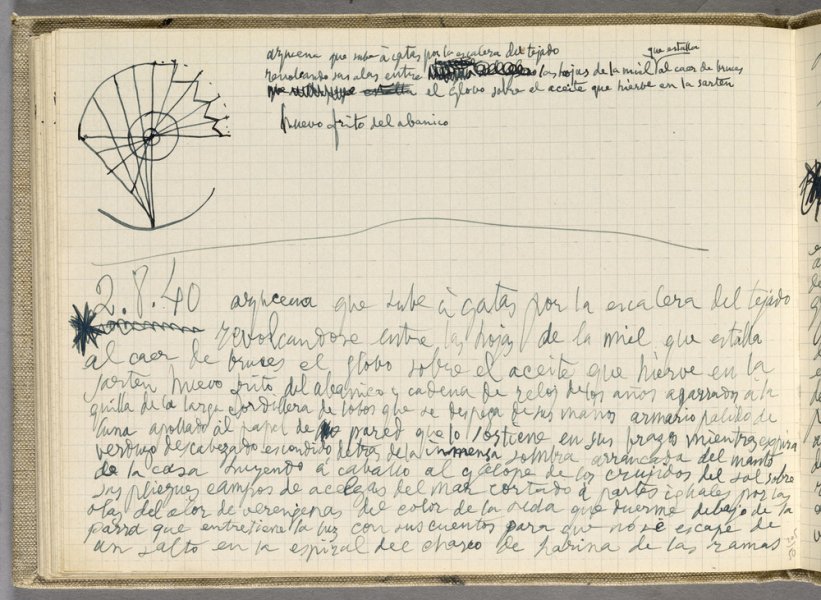 azucena que sube à gatas por la escalera del tejado
que estalla
revolcando sus alas entre las hojas de la miel al caer de bruces
el globo sobre el aceite que hierve en la sartén
huevo frito del abanico
2.8.40 azucena que sube à gatas por la escalera del tejado
revolcandose entre las hojas de la miel que estalla
al caer de bruces el globo sobre el aceite que hierve en la
sarten huevo frito del abanico y cadena de reloj de los años agarrados à la
quilla de la larga cordillera de lobos que se despega de sus manos armario palido de
luna apoyado al papel de pared que lo sostiene en sus brazos mientras espira
verdugo descabezado escondido detras de la inmensa sombra arrancada del manto
de la casa huyendo à caballo al galope de los crujidos del sol sobre
sus pliegues campos de acelgas del mar cortado à partes iguales por las
olas del olor de verengenas del color de la seda que duerme debajo de la
parra que entretiene la luz con sus cuentos para que no se escape de
un salto en la espiral del charco de harina de las ramas